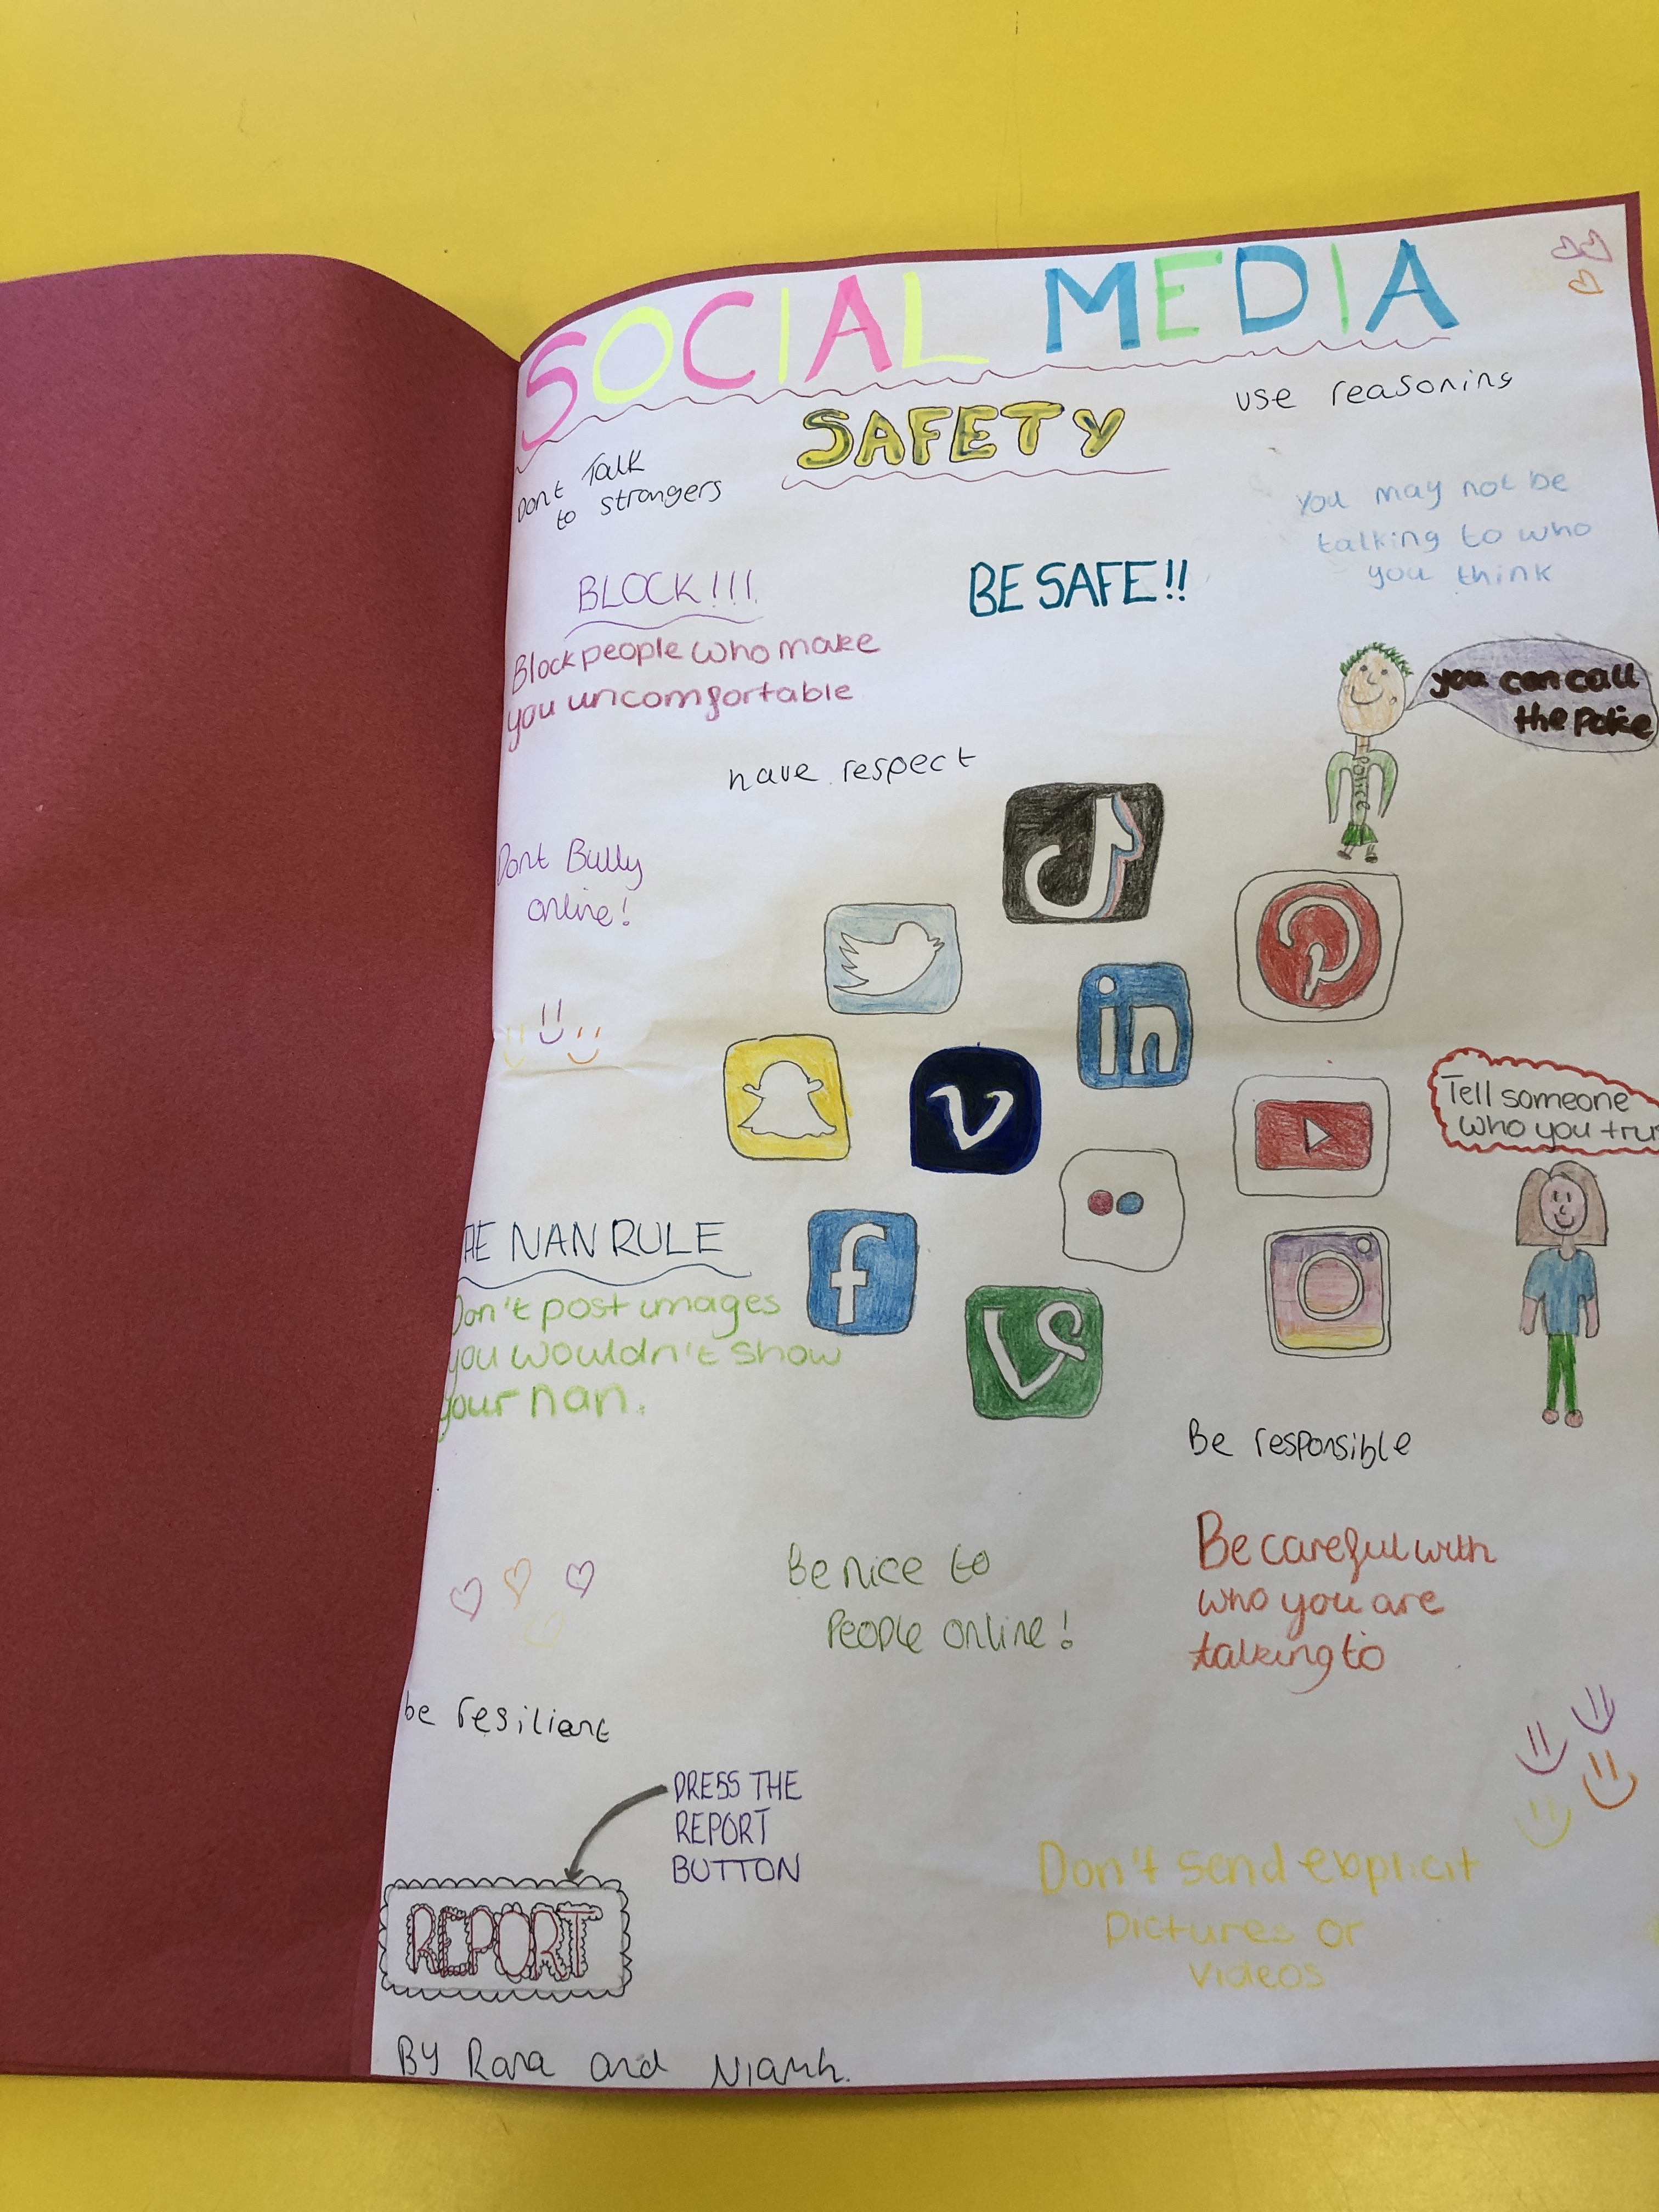 SOCIAL MEDIA
SAFETY
use reasoning
Dont Talk
to strangers
You may not be
talking to who
you think
BE SAFE!!
BLOCK!!!
Block people who make
you uncomfortable
you can call
the police
POLICE
have respect
Dont Bully
online!
in
V
f
Tell someone
who you tru
HE NAN RULE
Don't post images
you wouldn't show
your nan.
Be responsible
Be nice to
People online!
Be careful with
who you are
talking to
be resiliant
PRESS THE
REPORT
BUTTON
REPORT
Don't send explicit
pictures or
videos
By Rana and Niamh.